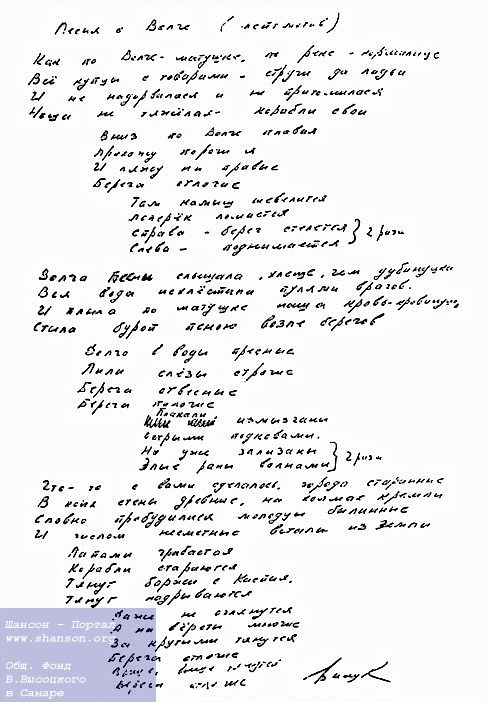 Песня о Волге (лейтмотив)
Как по Волге-матушке, по реке-кормилице
Всё купцы с товарами - струги да ладьи
И не надорвалася и не притомилася
Ноша не тяжелая - корабли свои
Вниз по Волге плавая
Прохожу пороги я
И гляжу на правые
Берега пологие
Там камыш шевелится
Поперёк ломается
Справа - берег стелется
Слева - поднимается
2 раза
Волга песни слышала, хлеще, чем дубинушка
Вся вода исхлёстана пулями врагов.
И плыла по матушке наша кровь-кровинушка,
Стыла бурой пеною возле берегов
Долго в воды пресные
Лили слёзы строгие
Берега отвесные
Берега пологие
Плакали
измызганы
острыми подковами.
Но уже зализаны
Злые раны волнами
2 раза
Что-то с вами сделалось, города старинные
В коих стены древние, на холмах кремли
Словно пробудилися молодцы былинные
И числом несметные встали из Земли
Лапами грабастая
Корабли стараются
Тянут баржи с Каспия,
Тянут надрываются
не оглянутся
А на вёрсты многие
За крутыми тянутся
Берега пологие
Шансон - Портал
www.shanson.org
Общ. Фонд
В.Высоцкого
в Самаре